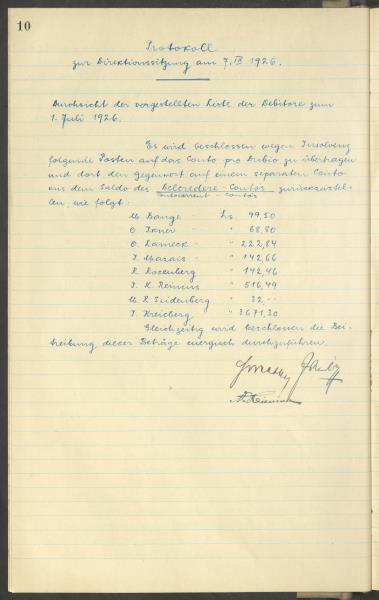 10
Protokoll
zur Direktionssitzung am 7. IX 1926.
Durchsicht der vorgestellten Liste der Debitore zum
1. Juli 1926.
Es wird beschlossen wegen Insolvenz
folgende Posten auf das Conto pro Dubio zu übertragen
und dort den Gegenwert auf einem separaten Conto
aus dem Saldo des Delcredere-Contos zurückzustel-
len, wie folgt:
M Bange - Ls. 99,50
O. - " 68,80
O. Lameck - " 222,84
J. - " 142,66
R. Rosenberg " 142,46
J. K. Reinus " 516,49
M. R. Seidenberg " 32,-
J. Kreisberg " 3671,30
Gleichzeitig wird beschlossen die Bei-
treibung dieser Beträge energisch durchzuführen.